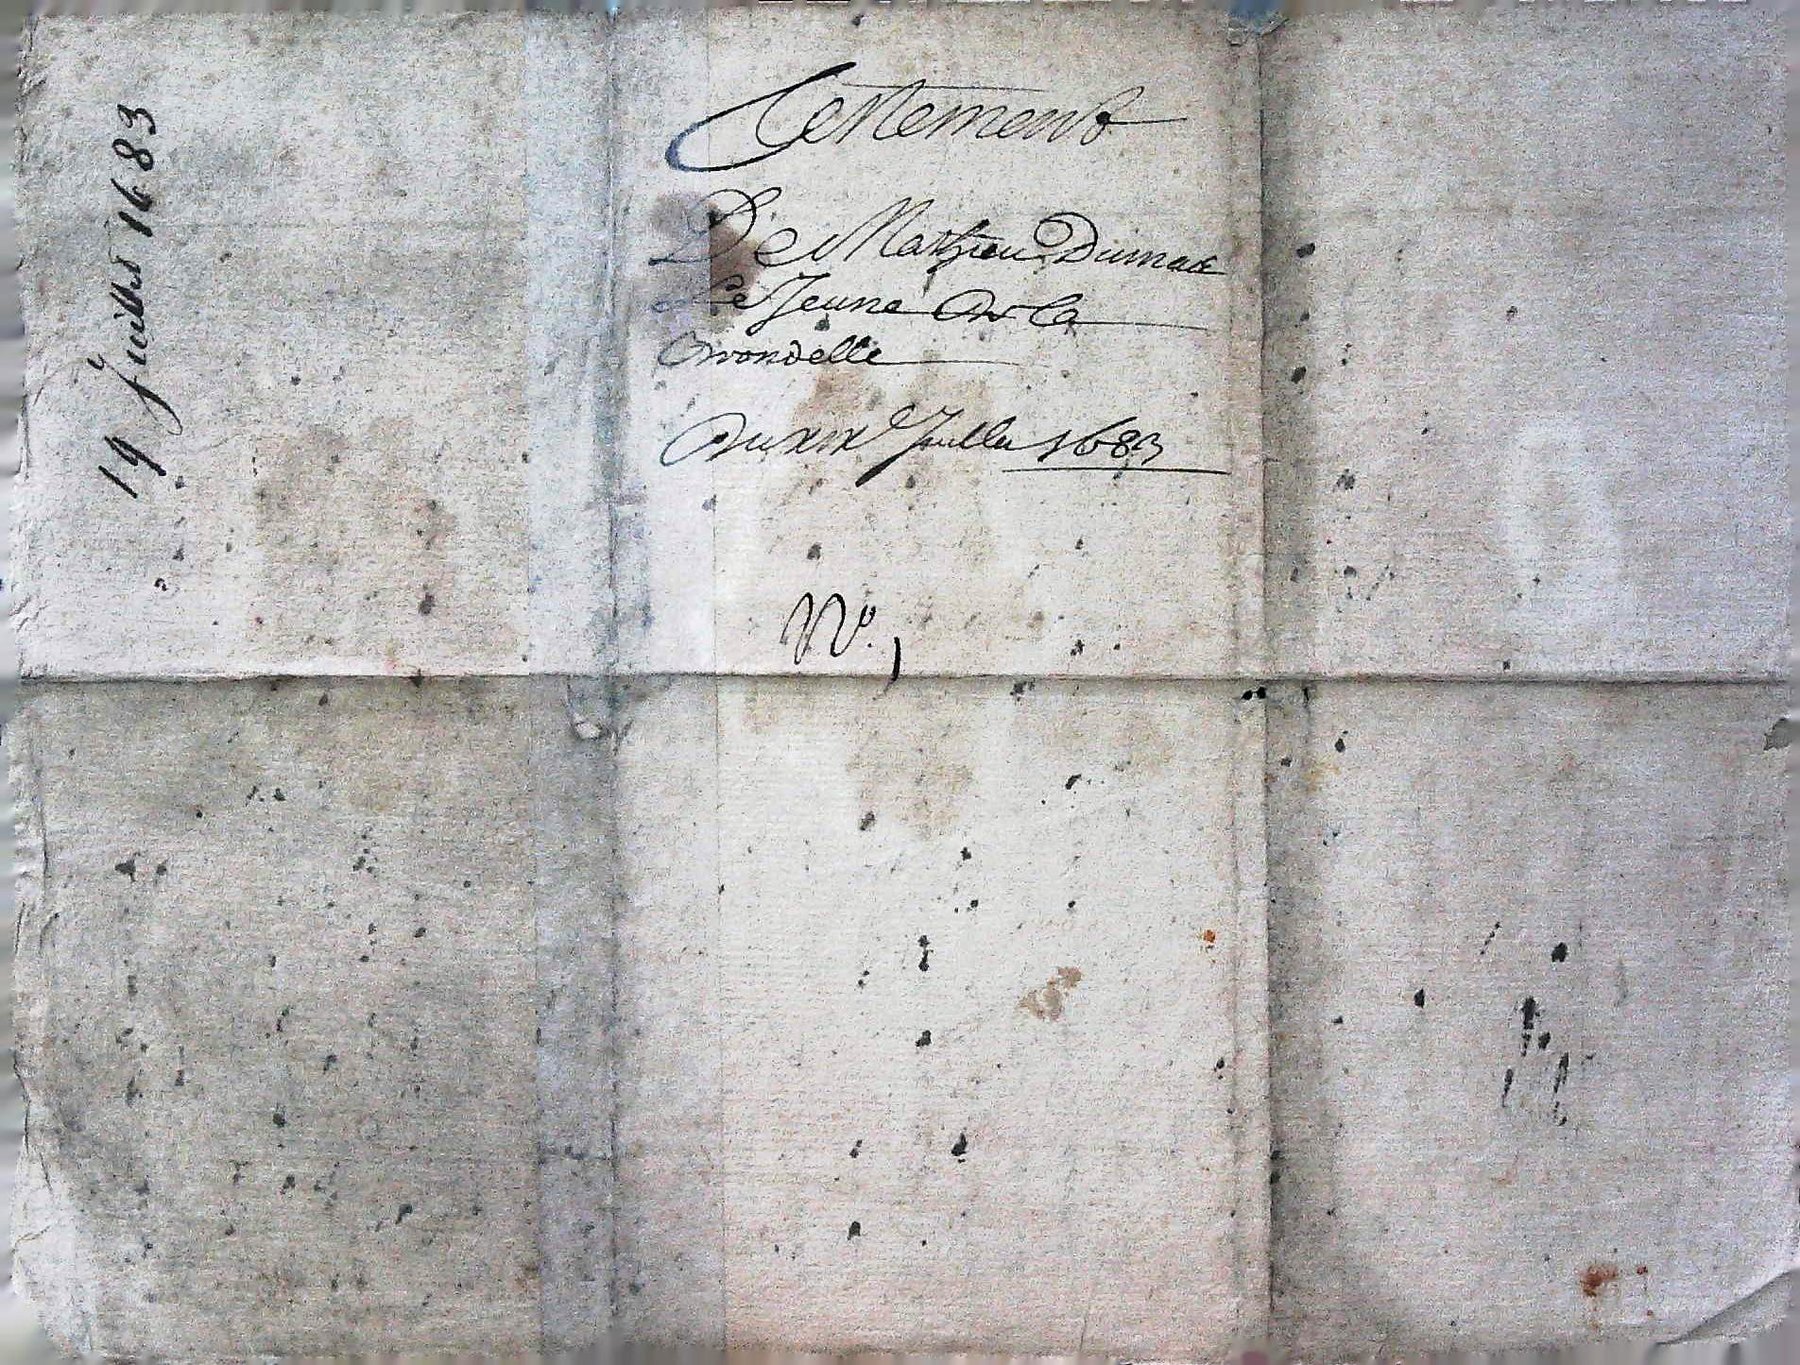 19 Juillet 1683
Testement
De Mathieu Dumas
Le Jeune De la
Brondelle
Du xix Juillet 1683
No. 1